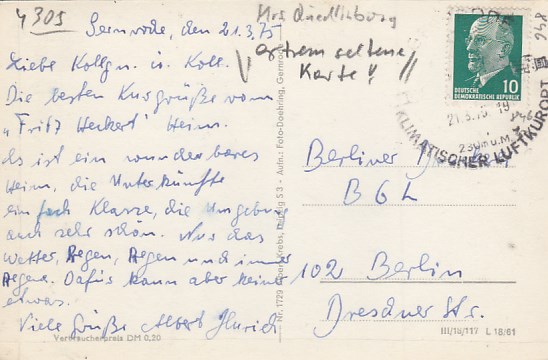 4305
Gernrode, den 21.3.75
Liebe Kolln. u. Koll.
Die besten Kurgrüße vom
"Fritz Heckert" Heim.
Es ist ein wunderbares
Heim, die Unterkünfte
einfach Klasse, die Umgebung
auch sehr schön. Nur das
Wetter, Regen, Regen und immer
Regen. Dafür kann aber keiner
etwas.
Viele Grüße Albert
Verbraucherpreis DM 0,20
Krs Quedlinburg
extrem seltene
Karte!
Krebs, 53 - Aufn.: Foto-Doehring,
Nr. 1729
DEUTSCHE
DEMOKRATISCHE REPUBLIK
10
21.3.75 19
230m ü.M.
KLIMATISCHER LUFTKURORT
Berliner
BGL
102 Berlin
Dresdner Str.
III/18/117 L 18/61